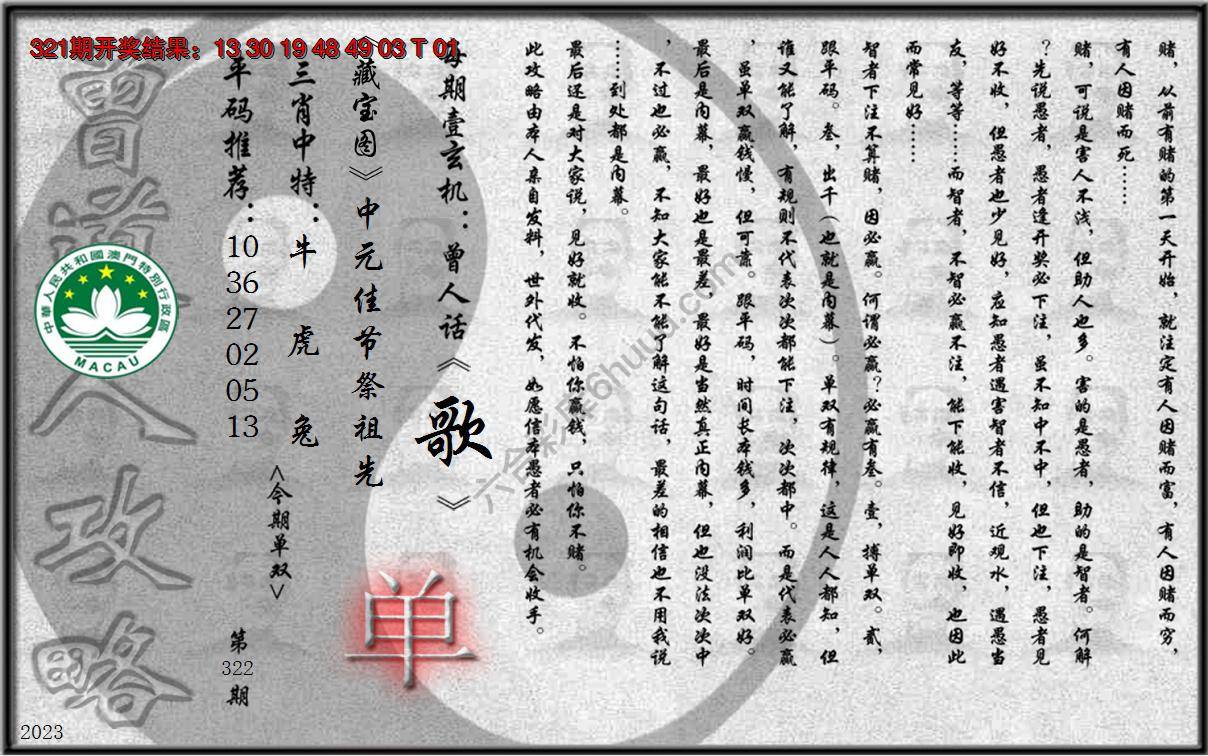 321期开奖结果：13 30 19 48 49 03 T 01
赌，从前有赌的第一天开始，就注定有人因赌而富，有人因赌而穷，
有人因赌而死……
赌，可说是害人不浅，但助人也多。害的是愚者，助的是智者。何解
？先说愚者，愚者逢开奖必下注，虽不知中不中，但也下注，愚者见
好不收，但愚者也少见好，应知愚者遇害智者不信，近观水，遇愚当
友，等等……而智者，不智必赢不注，能下能收，见好即收，也因此
而常见好……
智者下注不算赌，因必赢。何谓必赢？必赢有叁。壹，搏单双。贰，
跟平码。叁，出千（也就是内幕）。单双有规律，这是人人都知，但
谁又能了解，有规则不代表次次都能下注，次次都中。而是代表必赢
，虽单双赢钱慢，但可靠。跟平码，时间长本钱多，利润比单双好。
最后是内幕，最好也是最差，最好是当然真正内幕，但也没法次次中
，不过也必赢，不知大家能不能了解这句话，最差的相信也不用我说
……到处都是内幕。
最后还是对大家说，见好就收。不怕你赢钱，只怕你不赌。
此攻略由本人亲自发料，世外代发，如愿信本愚者必有机会收手。
每期壹玄机：曾人话《歌》
《藏宝图》中元佳节祭祖先
单
三肖中特：牛 虎 兔
<今期单双>
平码推荐：10 36 27 02 05 13
第322期
曾道人攻略
中華人民共和國澳門特別行政區
MACAU
六合彩库6huuu.com
2023